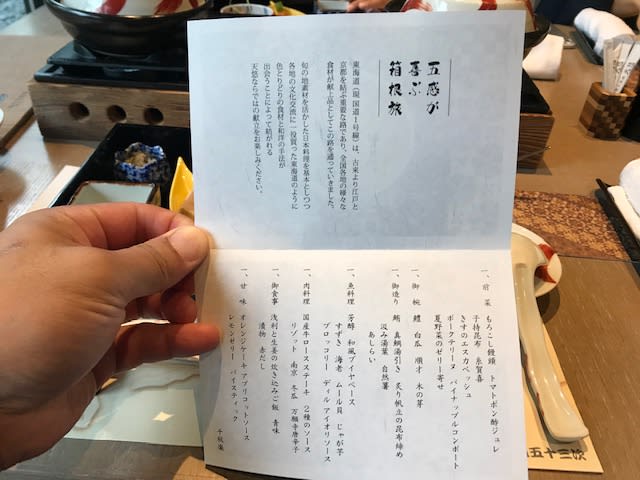 五感が
喜ぶ
箱根旅
東海道（現 国道1号線）は、古来より江戸と
京都を結ぶ重要な路であり、全国各地の種々な
食材が献上品としてこの路を通っていきました。
旬の地素材を活かした日本料理を基本としつつ
各地の文化交流に一役買った東海道のように
色とりどりの食材と和洋の手法が
出会うことによって紡がれる
天悠ならではの献立をお楽しみください。
一、前 菜 もろこし饅頭 トマトポン酢ジュレ
子持昆布 糸賀喜
きすのエスカベッシュ
ポークテリーヌ パイナップルコンポート
夏野菜のゼリー寄せ
一、御 椀 鱧 白瓜 順才 木の芽
一、御造り 鮪 真鯛湯引き 炙り帆立の昆布締め
汲み湯葉 自然薯
あしらい
一、魚料理 芳醇 和風ブイヤベース
すずき 海老 ムール貝 じゃが芋
ブロッコリー ディル アイオリソース
一、肉料理 国産牛ロースステーキ 2種のソース
リゾット 南京 冬瓜 万願寺唐辛子
一、御食事 浅利と生姜の炊き込みご飯 青味
漬物 赤だし
一、甘 味 オレンジケーキ アプリコットソース
レモンゼリー パイスティック
千秋楽
五十三次